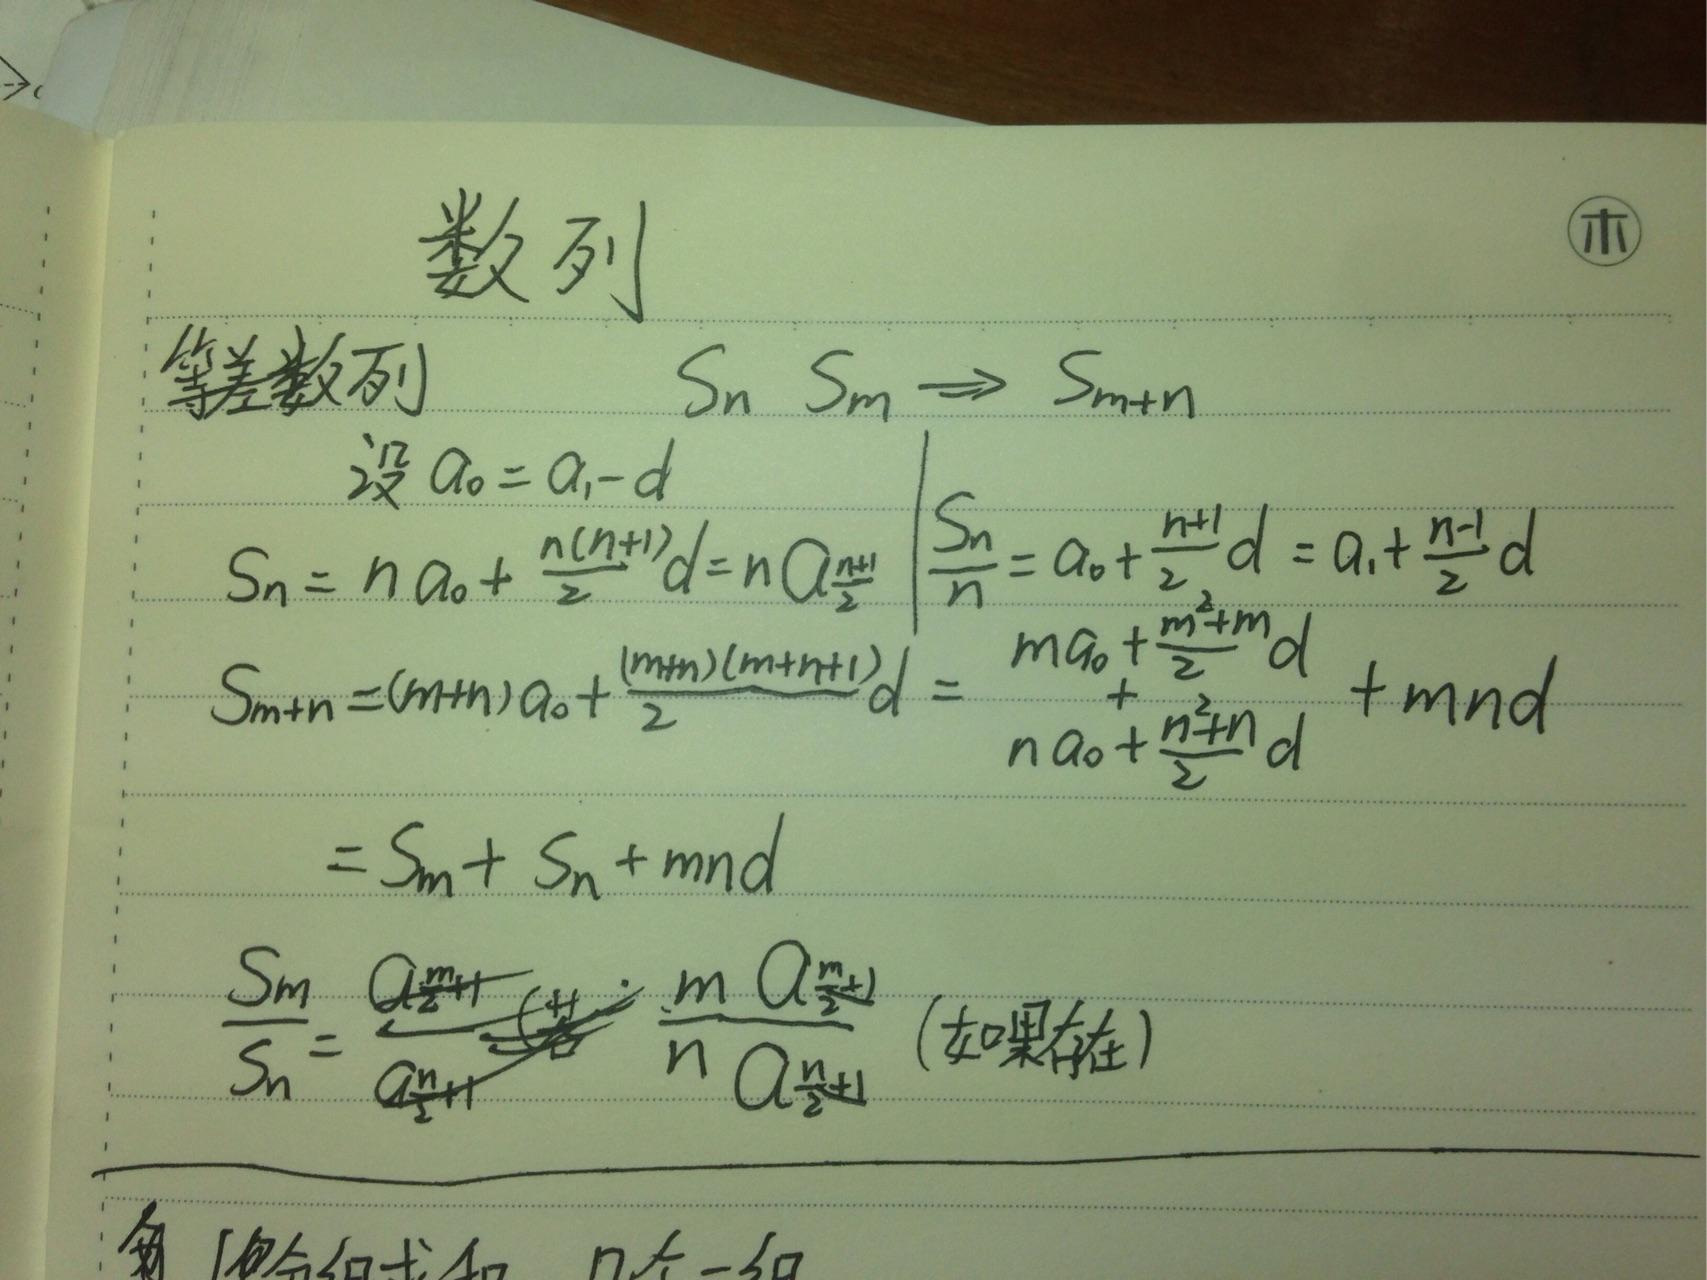 数列
木
等差数列 Sn Sm ⇒ Sm+n
设 a₀ = a₁ - d
Sn = na₀ + n(n+1)/2 d = n a_(n+1)/2 | Sn/n = a₀ + (n+1)/2 d = a₁ + (n-1)/2 d
Sm+n = (m+n)a₀ + (m+n)(m+n+1)/2 d = ma₀ + (m²+m)/2 d + na₀ + (n²+n)/2 d + mnd
= Sm + Sn + mnd
Sm/Sn = m a_(m/2+1) / n a_(n/2+1) (如果存在)